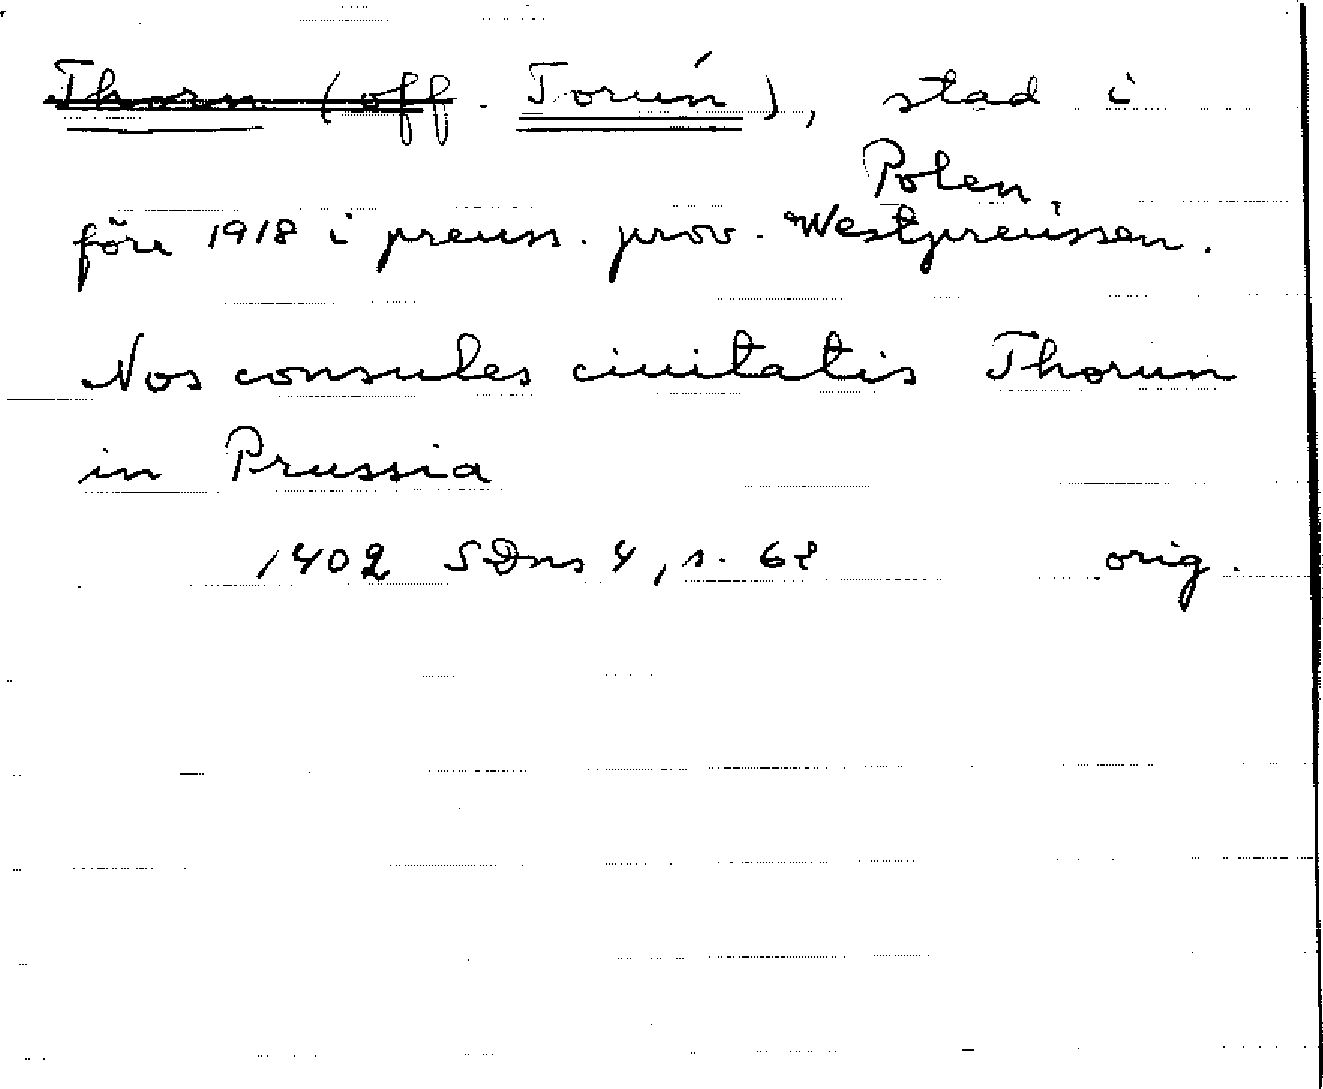 Thorn (off. Toruń), stad i
Polen,
före 1918 i preuss. prov. Westpreussen.
Nos consules ciuitatis Thorun
in Prussia
1402 SDns 4, s. 68 orig.